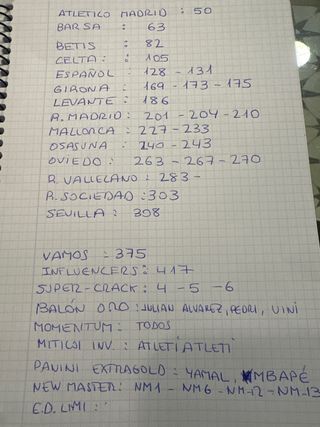 ATLETICO MADRID : 50
BARSA : 63
BETIS : 82
CELTA : 105
ESPAÑOL : 128 - 131
GIRONA : 169 - 173 - 175
LEVANTE : 186
R. MADRID : 201 - 204 - 210
MALLORCA : 227 - 233
OSASUNA : 240 - 243
OVIEDO : 263 - 267 - 270
R. VALLECANO : 283 -
R. SOCIEDAD : 303
SEVILLA : 308
VAMOS : 375
INFLUENCERS : 417
SUPER-CRACK : 4 - 5 - 6
BALÓN ORO : JULIAN ALVAREZ, PEDRI, VINI
MOMENTUM : TODOS
MITICOS INV. : ATLETI ATLETI
PANINI EXTRAGOLD : YAMAL, MBAPÉ
NEW MASTER : NM1 - NM6 - NM-12 - NM-13
E.D. LIMI :